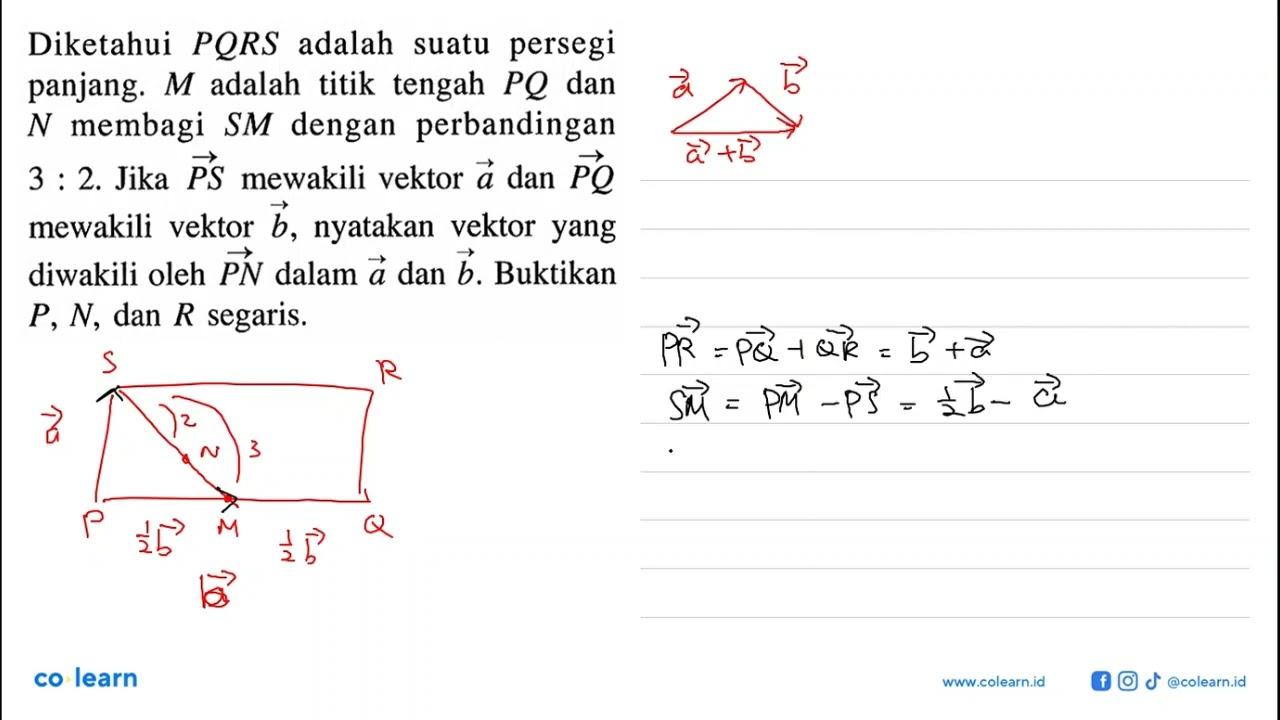 Diketahui PQRS adalah suatu persegi
panjang. M adalah titik tengah PQ dan
N membagi SM dengan perbandingan
3 : 2. Jika \overrightarrow{PS} mewakili vektor \vec{a} dan \overrightarrow{PQ}
mewakili vektor \vec{b}, nyatakan vektor yang
diwakili oleh \overrightarrow{PN} dalam \vec{a} dan \vec{b}. Buktikan
P, N, dan R segaris.
\vec{a} \vec{b}
\vec{a} + \vec{b}
\overrightarrow{PR} = \overrightarrow{PQ} + \overrightarrow{QR} = \vec{b} + \vec{a}
\overrightarrow{SM} = \overrightarrow{PM} - \overrightarrow{PS} = \frac{1}{2}\vec{b} - \vec{a}
S R
\vec{a} 2
N 3
P M Q
\frac{1}{2}\vec{b} \frac{1}{2}\vec{b}
\vec{b}
co learn
www.colearn.id @colearn.id